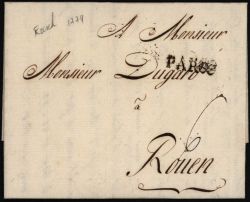 1779
A Monsieur
Monsieur Dugard
PARIS
à
6
Rouen